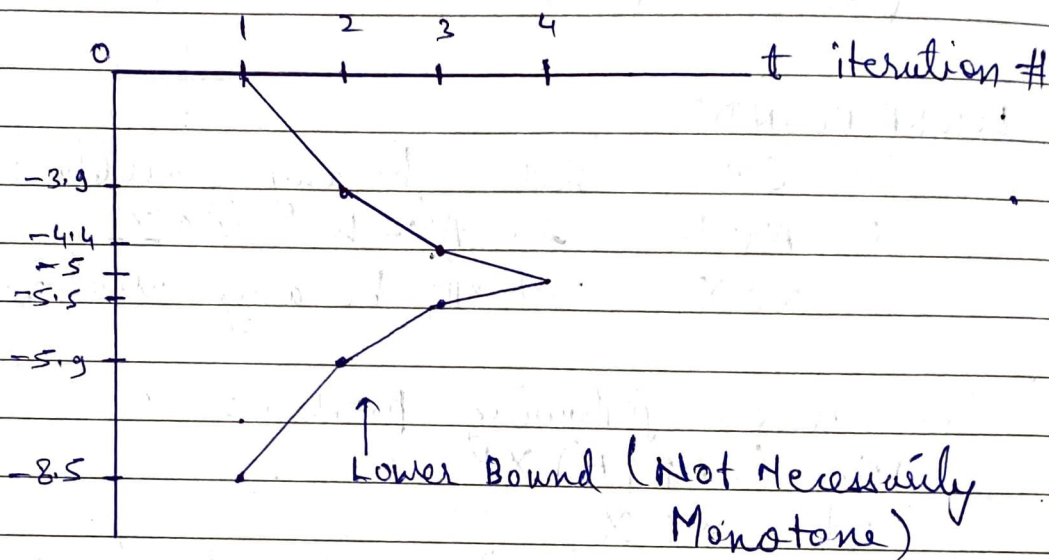 1 2 3 4
0
t iterution #
-3.9
-4.4
-5
-5.5
-5.9
-8.5
Lower Bound (Not Necessarily
Monotone)